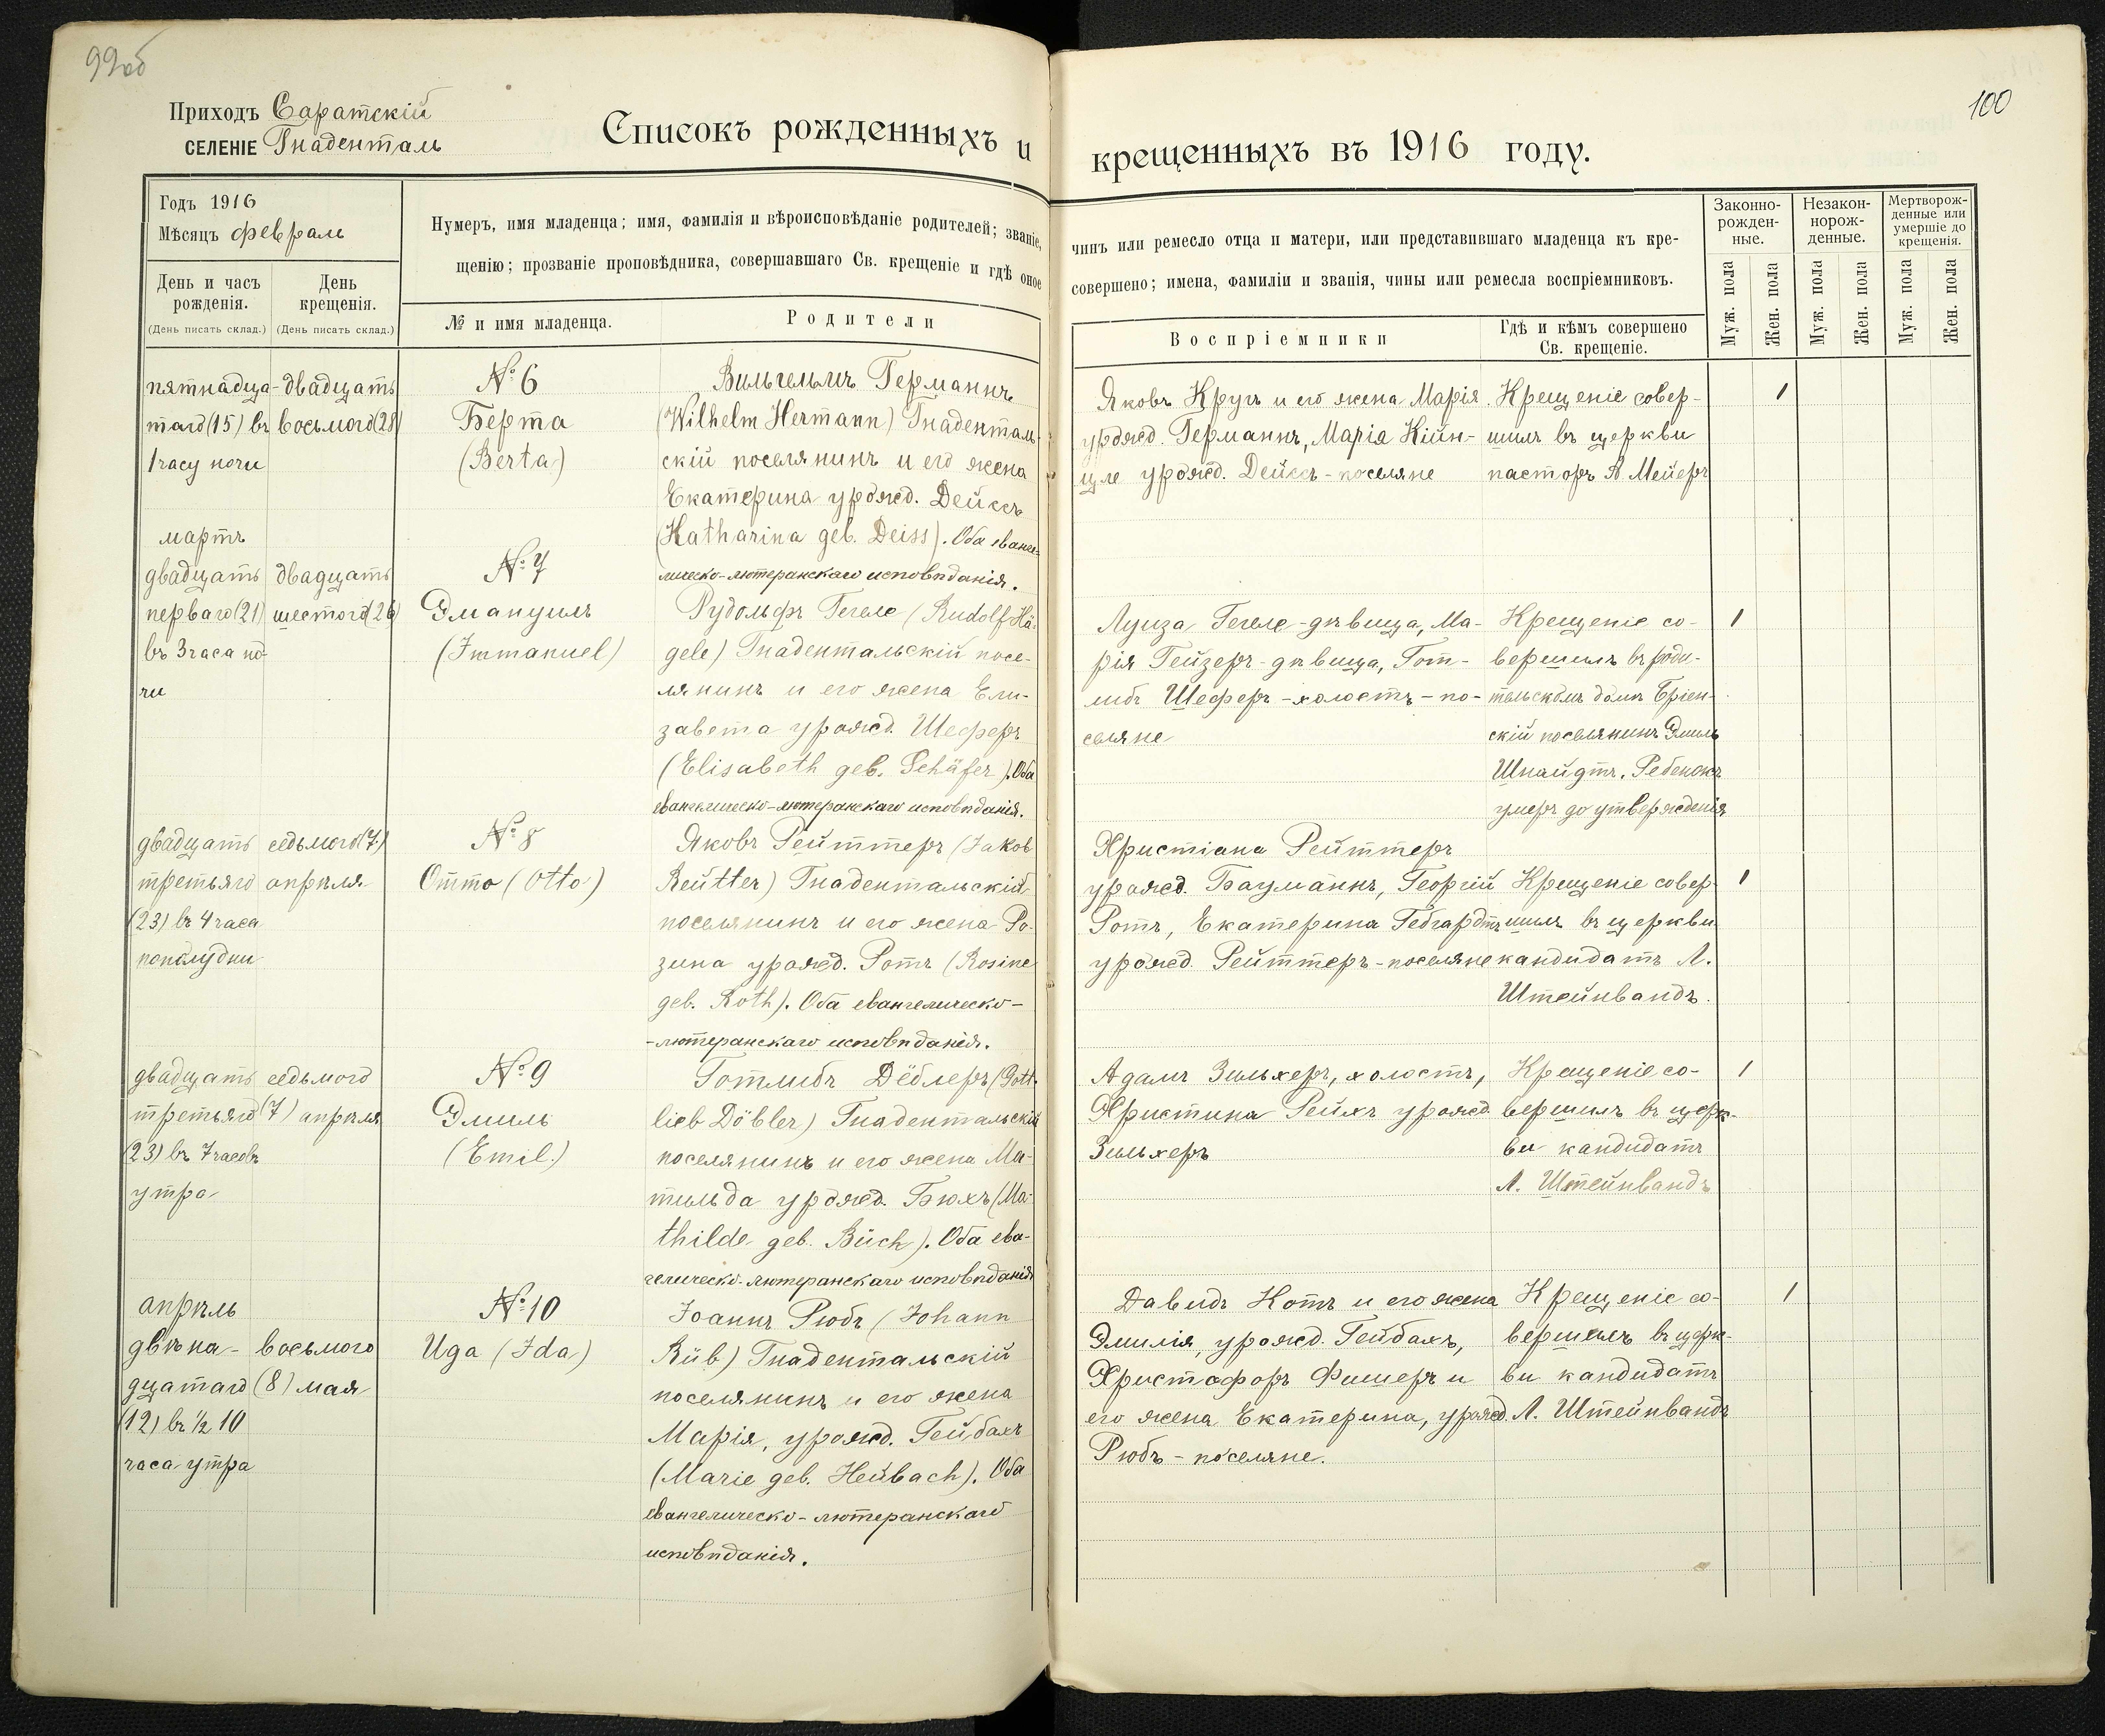 99об
100
Приходъ Саратскій
СЕЛЕНІЕ Гнаденталь
Списокъ рожденныхъ и крещенныхъ въ 1916 году.
Годъ 1916
Мѣсяцъ февраль
День и часъ рожденія.
(День писать склад.)
День крещенія.
(День писать склад.)
Нумеръ, имя младенца; имя, фамилія и вѣроисповѣданіе родителей; званіе, чинъ или ремесло отца и матери, или представившаго младенца къ кре-
щенію; прозваніе проповѣдника, совершавшаго Св. крещеніе и гдѣ оное совершено; имена, фамиліи и званія, чины или ремесла воспріемниковъ.
№ и имя младенца.
Родители
Воспріемники
Гдѣ и кѣмъ совершено
Св. крещеніе.
Законно-
рожден-
ные.
Незакон-
норож-
денные.
Мертворож-
денные или
умершіе до
крещенія.
Муж. пола
Жен. пола
Муж. пола
Жен. пола
Муж. пола
Жен. пола
пятнадца-
таго (15) въ
1 часу ночи
двадцать
восьмого (28)
№ 6
Берта
(Berta)
Вильгельмъ Германнъ
(Wilhelm Hermann) Гнаденталь-
скій поселянинъ и его жена
Екатерина урожд. Дейссъ
(Katharina geb. Deiss). Оба еванге-
лическо-лютеранскаго исповѣданія.
Яковъ Кругъ и его жена Марія
урожд. Германнъ, Марія Кійн-
цле урожд. Дейссъ - поселяне
Крещеніе совер-
шилъ въ церкви
пасторъ А. Мейеръ
1
мартъ
двадцать
перваго (21)
въ 3 часа но-
чи
двадцать
шестого (26)
№ 7
Эмануилъ
(Immanuel)
Рудольфъ Гегеле (Rudolf Hä-
gele) Гнадентальскій посе-
лянинъ и его жена Ели-
завета урожд. Шеферъ
(Elisabeth geb. Schäfer). Оба
евангелическо-лютеранскаго исповѣданія.
Луиза Гегеле - дѣвица, Ма-
рія Гейзеръ - дѣвица, Гот-
либъ Шеферъ - холостъ - по-
селяне
Крещеніе со-
вершилъ въ роди-
тельскомъ домѣ Бріен-
скій поселянинъ Эмиль
Шнайдтъ. Ребенокъ
умеръ до утвержденія
1
двадцать
третьяго
(23) въ 4 часа
пополудни
седьмого (7)
апрѣля
№ 8
Отто (Otto)
Яковъ Рейттеръ (Jakob
Reütter) Гнадентальскій
поселянинъ и его жена Ро-
зина урожд. Ротъ (Rosine
geb. Roth). Оба евангелическо-
-лютеранскаго исповѣданія.
Христіана Рейттеръ
урожд. Бауманнъ, Георгій
Ротъ, Екатерина Гебгардтъ
урожд. Рейттеръ - поселяне
Крещеніе совер-
шилъ въ церкви
кандидатъ Л.
Штейнвандъ.
1
двадцать
третьяго
(23) въ 7 часовъ
утра
седьмого
(7) апрѣля
№ 9
Эмиль
(Emil.)
Готлибъ Дёблеръ (Gott-
lieb Döbler) Гнадентальскій
поселянинъ и его жена Ма-
тильда урожд. Бюхъ (Ma-
thilde geb. Büch). Оба еван-
гелическо-лютеранскаго исповѣданія
Адамъ Зильхеръ, холостъ,
Христина Рейхъ урожд.
Зильхеръ
Крещеніе со-
вершилъ въ церк-
ви кандидатъ
Л. Штейнвандъ
1
апрѣль
двѣна-
дцатаго
(12) въ ½ 10
часа утра
восьмого
(8) мая
№ 10
Ида (Ida)
Іоаннъ Рюбъ (Johann
Rüb) Гнадентальскій
поселянинъ и его жена
Марія, урожд. Гейбахъ
(Marie geb. Heübach). Оба
евангелическо-лютеранскаго
исповѣданія.
Давидъ Котъ и его жена
Эмилія, урожд. Гейбахъ,
Христофоръ Фишеръ и
его жена Екатерина, урожд.
Рюбъ - поселяне.
Крещеніе со-
вершилъ въ церк-
ви кандидатъ
Л. Штейнвандъ
1